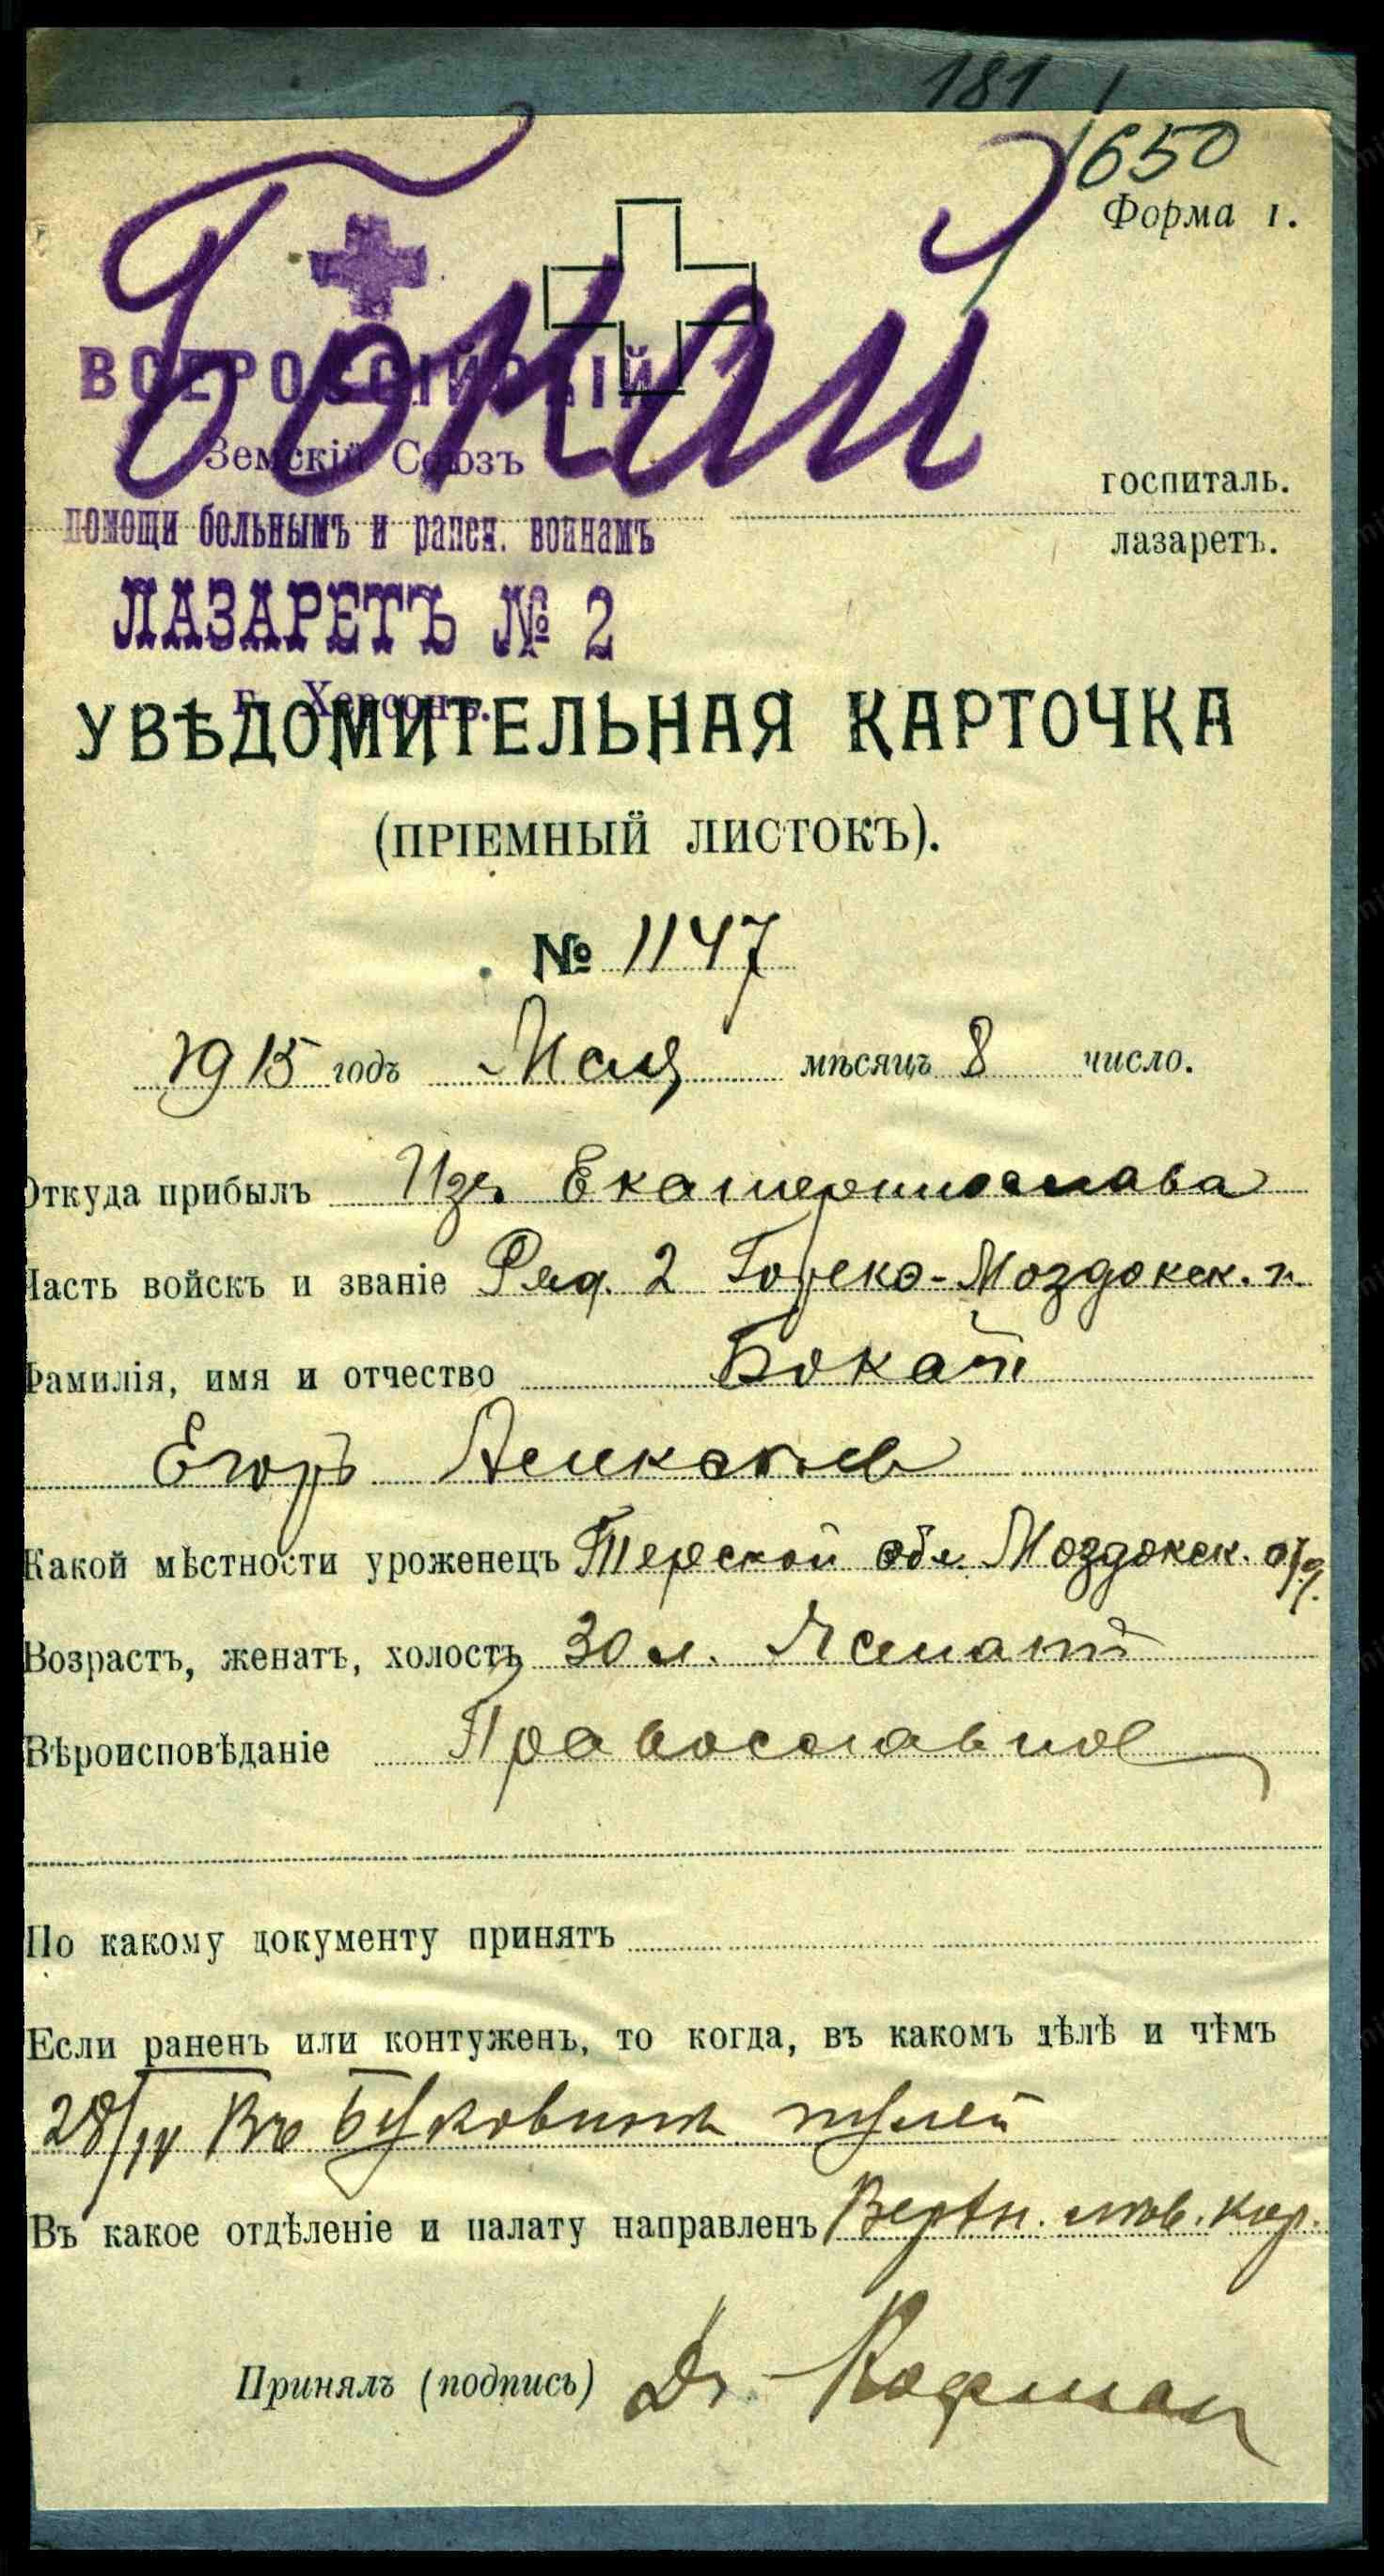 181
1650
Форма 1.
Бокай
ВСЕРОССІЙСКІЙ
Земскій Союзъ
госпиталь.
помощи больнымъ и ранен. воинамъ
лазаретъ.
ЛАЗАРЕТЪ № 2
г. Херсонъ.
УВѢДОМИТЕЛЬНАЯ КАРТОЧКА
(ПРІЕМНЫЙ ЛИСТОКЪ).
№ 1147
1915 годъ Мая мѣсяцъ 8 число.
Откуда прибылъ Изъ Екатеринослава
Часть войскъ и званіе Ряд. 2 Горско-Моздокск. п.
Фамилія, имя и отчество Бокай
Егоръ Алексѣев
Какой мѣстности уроженецъ Терской обл. Моздокск. отд.
Возрастъ, женатъ, холостъ 30 л. Женатъ
Вѣроисповѣданіе Православное
По какому документу принятъ
Если раненъ или контуженъ, то когда, въ какомъ дѣлѣ и чѣмъ
28/IV Въ Буковинѣ пулей
Въ какое отдѣленіе и палату направленъ кор.
Принялъ (подпись) Dr. Кофман